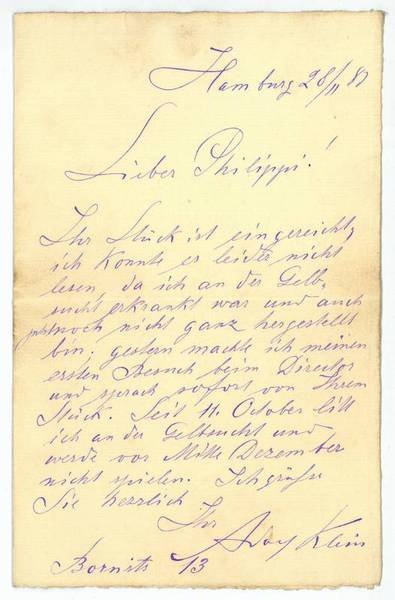 Hamburg 28/11 87
Lieber Philippi!
Ihr Stück ist eingereicht,
ich konnte es leider nicht
lesen, da ich an der Gelb,
sucht erkrankt war und auch
jetzt noch nicht ganz hergestellt
bin. gestern machte ich meinen
ersten Besuch beim Director
und sprach sofort von Ihrem
Stück. Seit 11. October litt
ich an der Gelbsucht und
werde vor Mitte Dezember
nicht spielen. Ich grüße
Sie herzlich
Ihr
Adolf Klein
13